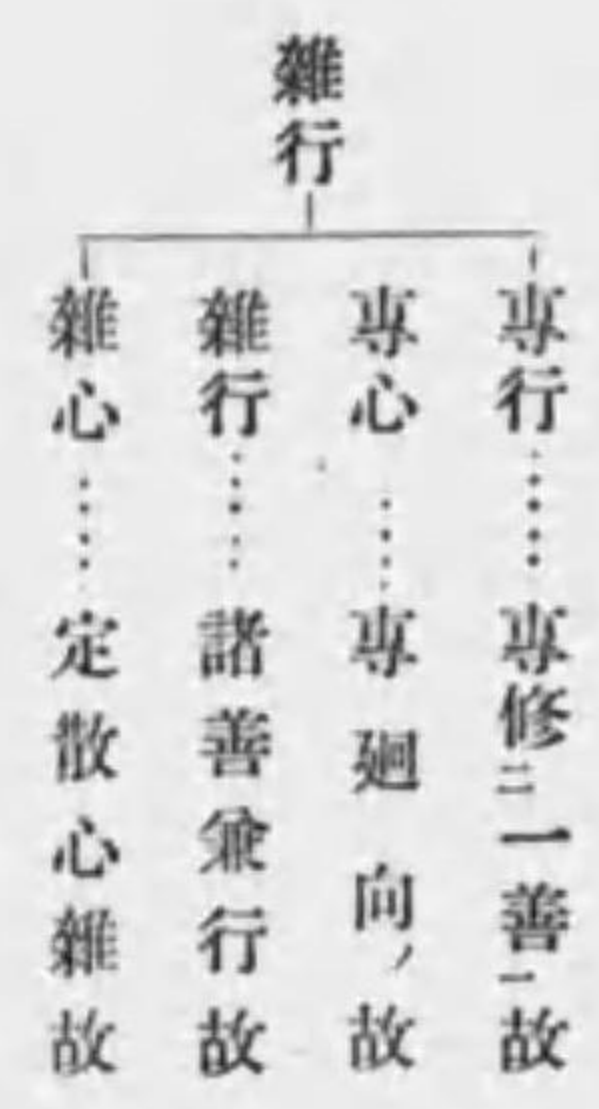 雜行
專行……專修㆓一善㆒故
專心……專廻向ノ故
雜行……諸善兼行故
雜心……定散心雜故